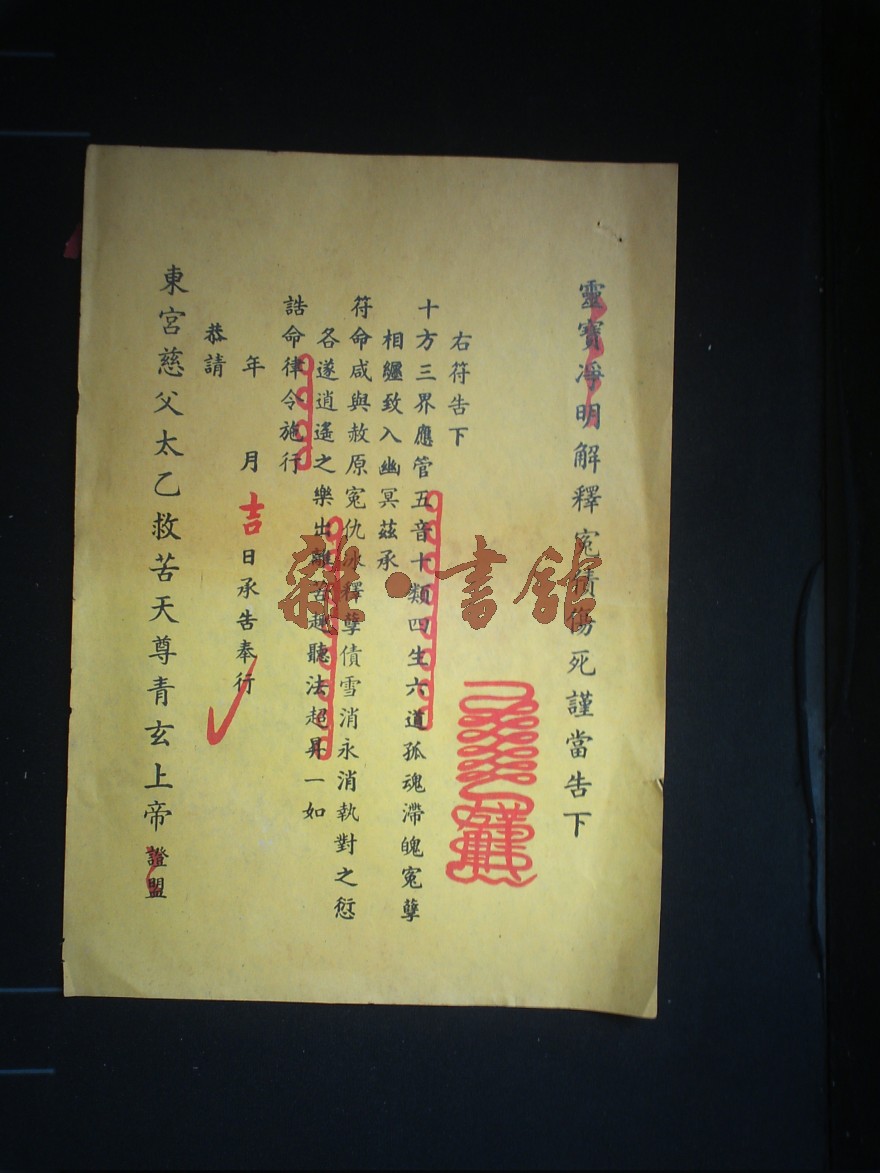 靈寶淨明解釋冤債傷死謹當告下
右符告下
十方三界應管五音十類四生六道孤魂滯魄冤孽
相纏致入幽冥茲承
符命咸與赦原冤仇冰釋孽債雪消永消執對之愆
各遂逍遙之樂出離苦趣聽法超昇一如
誥命律令施行
年 月吉日承告奉行
恭請
東宮慈父太乙救苦天尊青玄上帝證盟
雜·書館